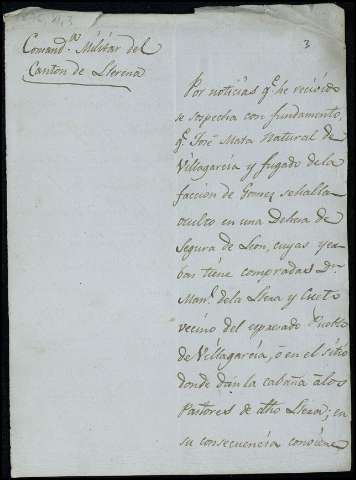 3
Comand.ª Militar del
Canton de Llerena
Por noticias q.e he recivido
se sospecha con fundamento,
q.e José Mata Natural de
Villagarcia y fugado de la
faccion de Gomez se halla
oculto en una Dehesa de
Segura de Leon, cuyas yer
bas tiene compradas D.n
Man.l de la Llera y
vecino del espresado Pueblo
de Villagarcia, ó en el sitio
donde dan la cabaña á los
Pastores de dho Llera; en
su consecuencia conviene